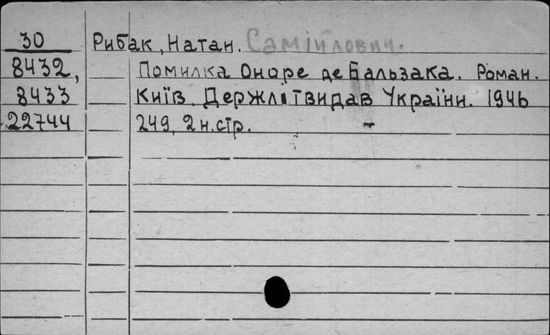 30 Рибак, Натан. Самійлович.
8432, Помилка Оноре де Бальзака. Роман.
8433 Київ. Держлітвидав України. 1946
22744 249, 2 н.стр. -